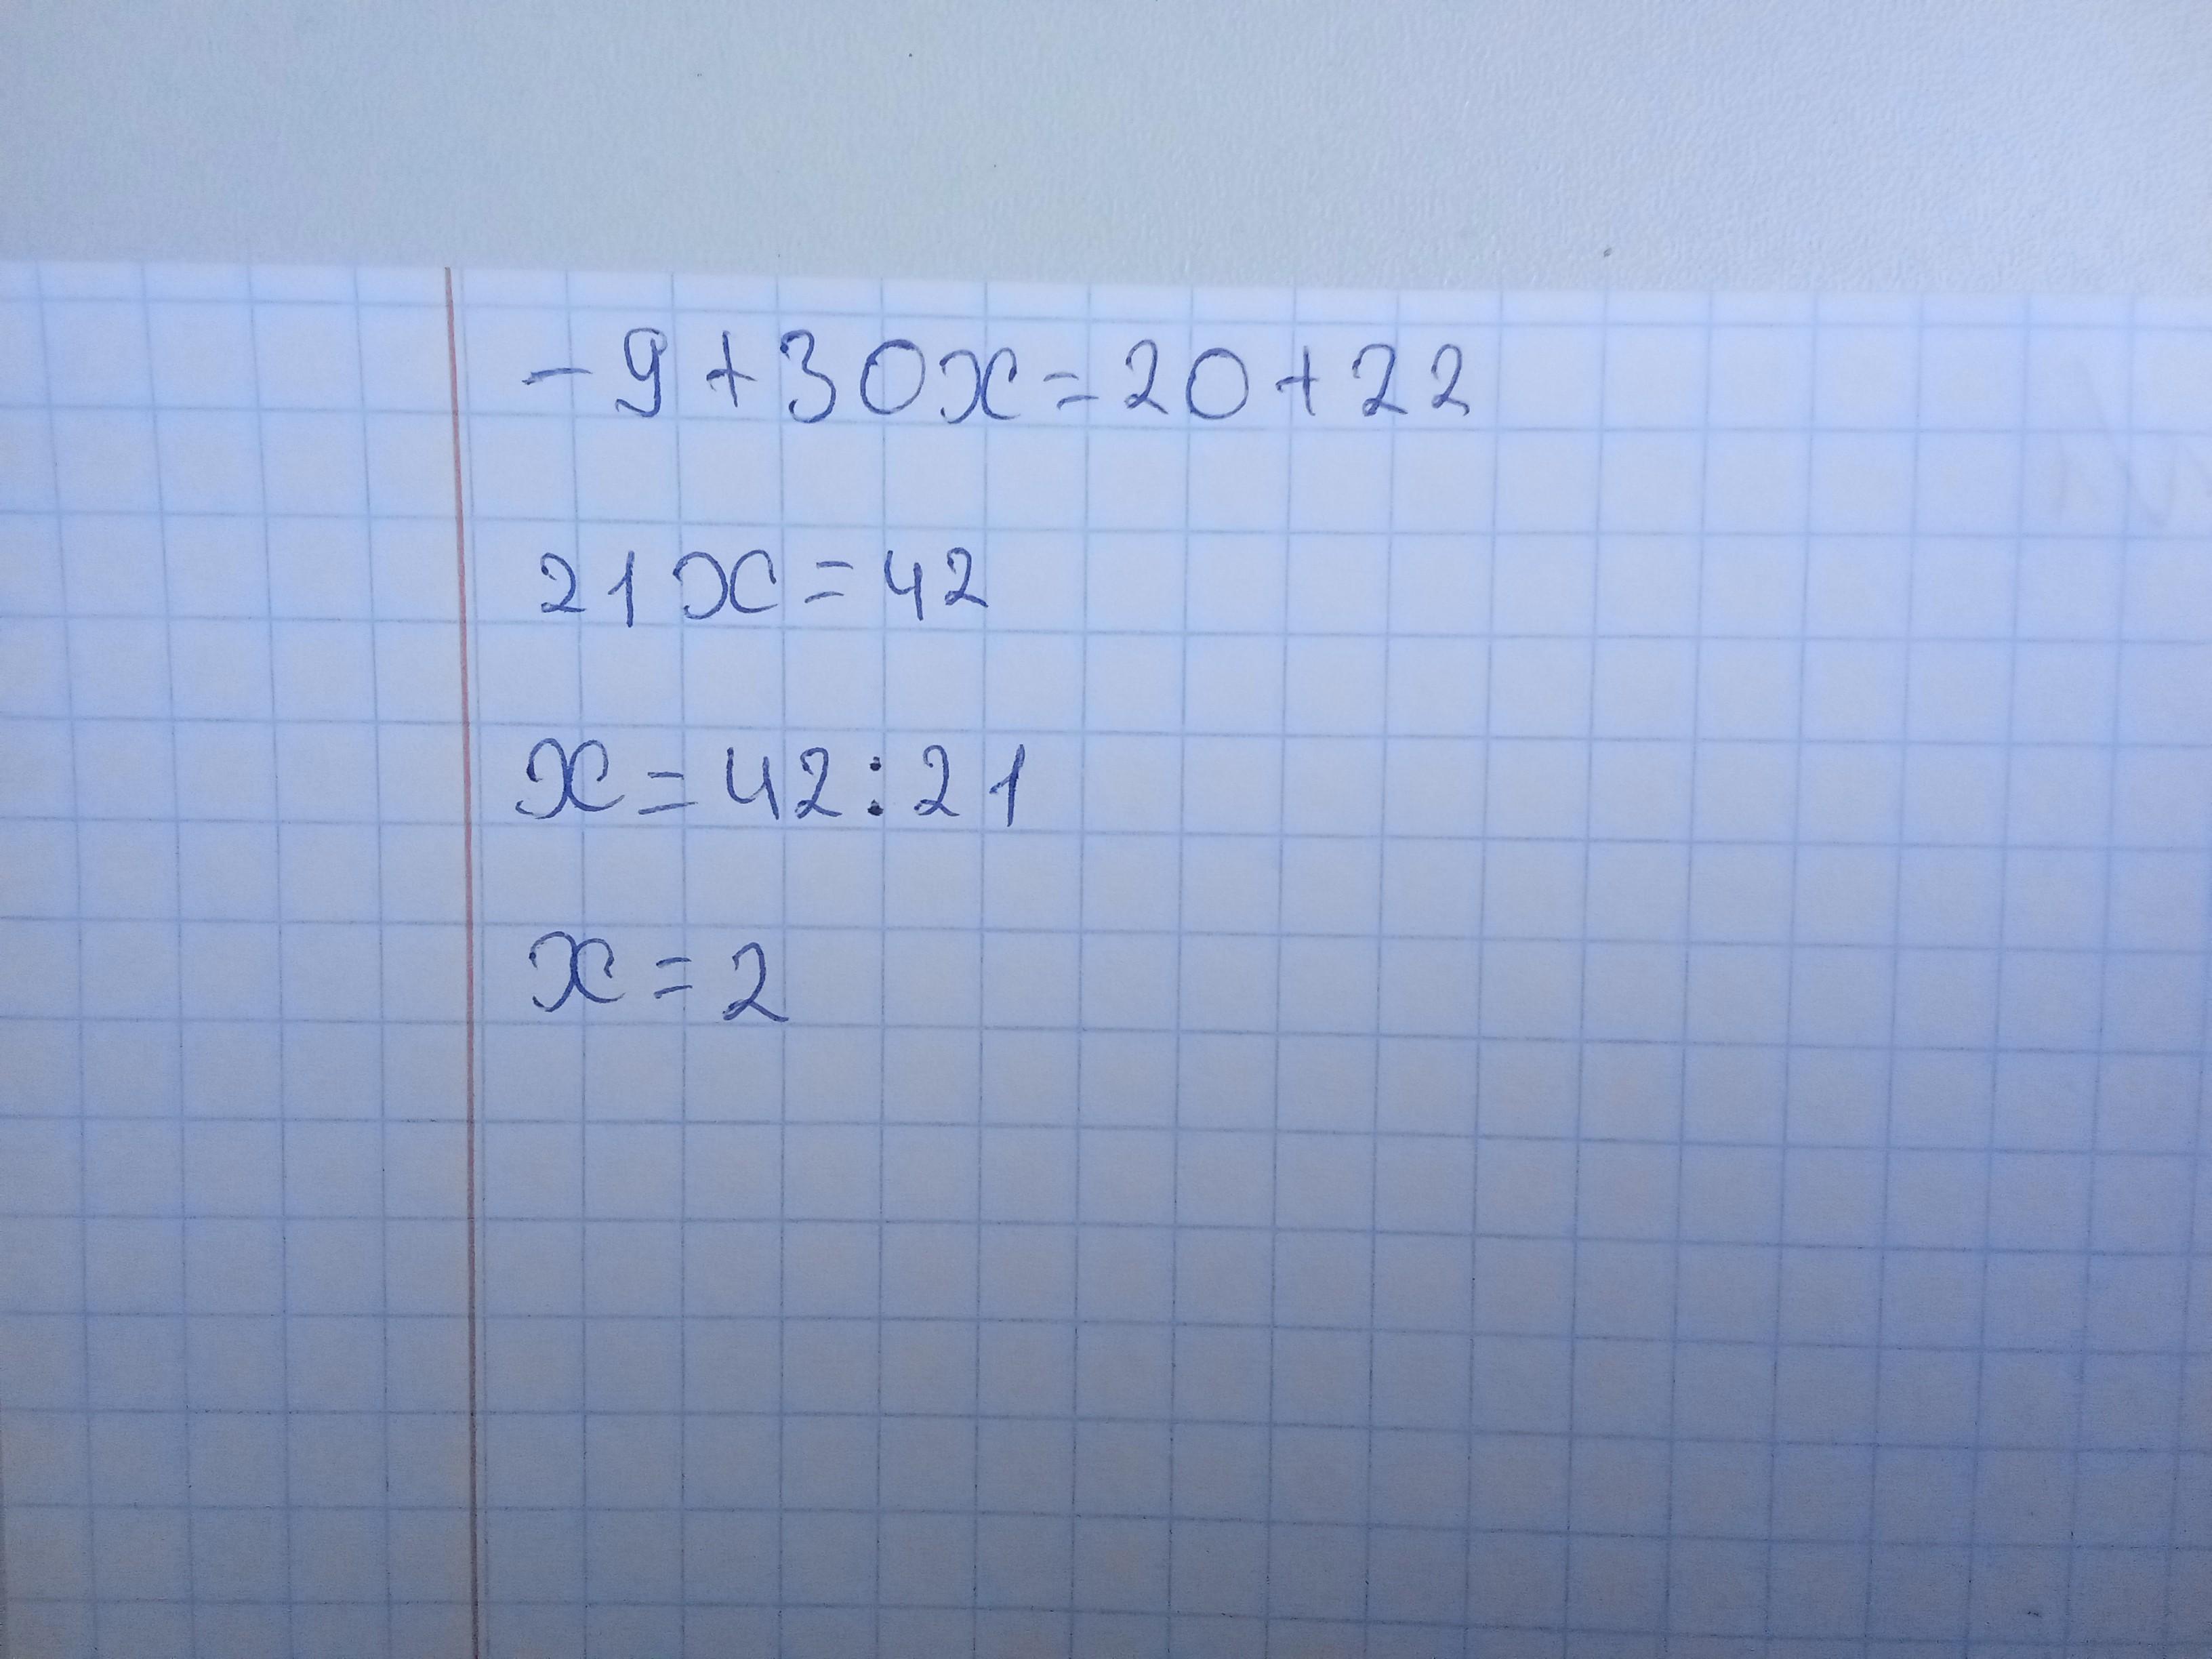 -9+30x=20+22
21x=42
x=42:21
x=2